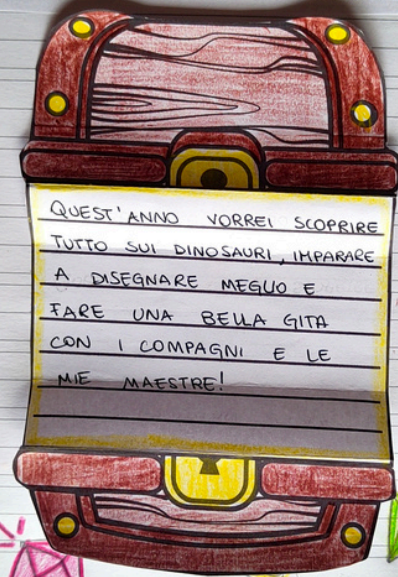 QUEST'ANNO VORREI SCOPRIRE
TUTTO SUI DINOSAURI, IMPARARE
A DISEGNARE MEGLIO E
FARE UNA BELLA GITA
CON I COMPAGNI E LE
MIE MAESTRE!